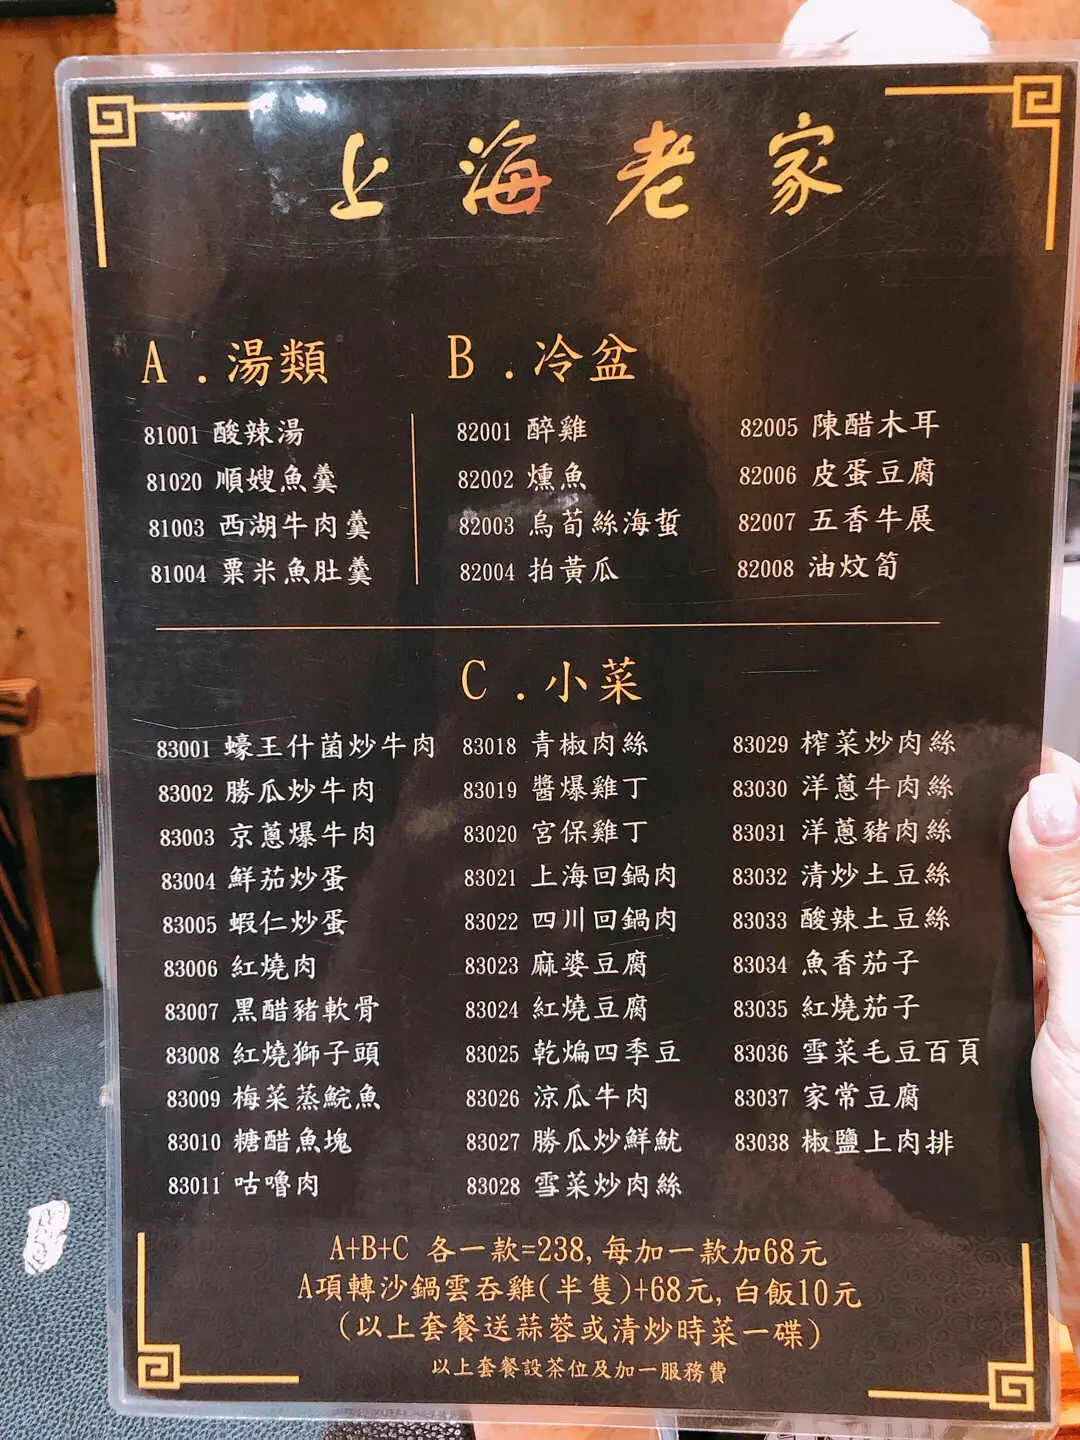 上海老家
A.湯類
81001 酸辣湯
81020 順嫂魚羹
81003 西湖牛肉羹
81004 粟米魚肚羹
B.冷盆
82001 醉雞
82002 燻魚
82003 烏荀絲海蜇
82004 拍黃瓜
82005 陳醋木耳
82006 皮蛋豆腐
82007 五香牛展
82008 油炆筍
C.小菜
83001 蠔王什菌炒牛肉
83002 勝瓜炒牛肉
83003 京蔥爆牛肉
83004 鮮茄炒蛋
83005 蝦仁炒蛋
83006 紅燒肉
83007 黑醋豬軟骨
83008 紅燒獅子頭
83009 梅菜蒸鯇魚
83010 糖醋魚塊
83011 咕嚕肉
83018 青椒肉絲
83019 醬爆雞丁
83020 宮保雞丁
83021 上海回鍋肉
83022 四川回鍋肉
83023 麻婆豆腐
83024 紅燒豆腐
83025 乾煸四季豆
83026 涼瓜牛肉
83027 勝瓜炒鮮魷
83028 雪菜炒肉絲
83029 榨菜炒肉絲
83030 洋蔥牛肉絲
83031 洋蔥豬肉絲
83032 清炒土豆絲
83033 酸辣土豆絲
83034 魚香茄子
83035 紅燒茄子
83036 雪菜毛豆百頁
83037 家常豆腐
83038 椒鹽上肉排
A+B+C 各一款=238,每加一款加68元
A項轉沙鍋雲吞雞(半隻)+68元,白飯10元
(以上套餐送蒜蓉或清炒時菜一碟)
以上套餐設茶位及加一服務費